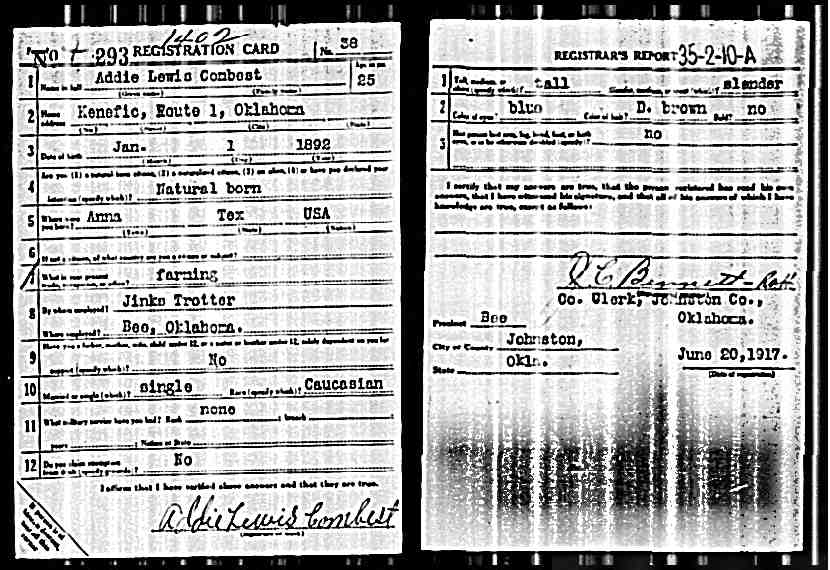 1402
No + 293 REGISTRATION CARD No. 38
1 Addie Lewis Combest 25
Name in full
(Given name) (Family name)
Age, in yrs.
2 Home address Kenefic, Route 1, Oklahoma
(No.) (Street) (City) (State)
3 Date of birth Jan. 1 1892
(Month) (Day) (Year)
4 Are you (1) a natural born citizen, (2) a naturalized citizen, (3) an alien, (4) or have you declared your
intention (specify which)? Natural born
5 Where were you born? Anna Tex USA
(Town) (State) (Nation)
6 If not a citizen, of what country are you a citizen or subject?
7 What is your present trade, occupation, or office? farming
8 By whom employed? Jinks Trotter
Where employed? Bee, Oklahoma.
9 Have you a father, mother, wife, child under 12, or a sister or brother under 12, solely dependent on you for
support (specify which)? No
10 Married or single (which)? single Race (specify which)? Caucasian
11 What military service have you had? Rank none ; branch
years ; Nation or State
12 Do you claim exemption from draft (specify grounds)? No
I affirm that I have verified above answers and that they are true.
Addie Lewis Combest
(Signature or mark)
REGISTRAR'S REPORT 35-2-10-A
1 Tall, medium, or short (specify which)? tall Slender, medium, or stout (which)? slender
2 Color of eyes? blue Color of hair? D. brown Bald? no
3 Has person lost arm, leg, hand, foot, or both eyes, or is he otherwise disabled (specify)? no
I certify that my answers are true, that the person registered has read his own
answers, that I have witnessed his signature, and that all of his answers of which I have
knowledge are true, except as follows:
Bennett
Co. Clerk, Johnston Co.,
Precinct Bee Oklahoma.
City or County Johnston,
State Okla. June 20, 1917.
(Date of registration)